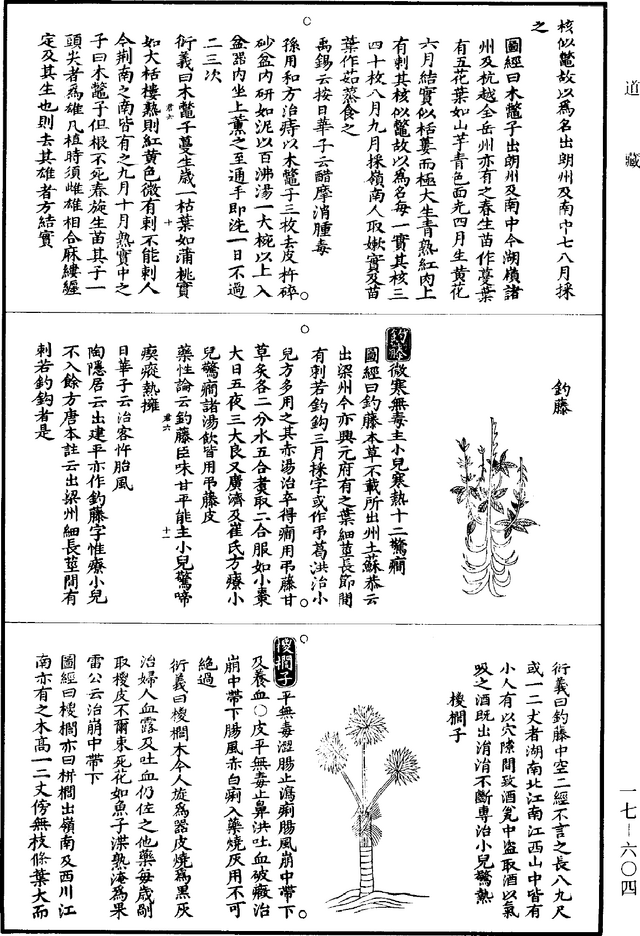 道藏
核似鼈故以爲名出朗州及南中七八月採
之
圖經曰木鼈子出朗州及南中今湖嶺諸
州及杭越全岳州亦有之春生苗作蔓葉
有五花葉如山芋青色面光四月生黄花
六月結實似栝蔞而極大生青熟紅肉上
有刺其核似鼈故以爲名每一實其核三
四十枚八月九月採嶺南人取嫩實及苗
葉作茹蒸食之
禹錫云按日華子云醋摩消腫毒
孫用和方治痔以木鼈子三枚去皮杵碎
砂盆内研如泥以百沸湯一大椀以上入
盆器内坐上薰之至通手即洗一日不過
二三次
衍義曰木鼈子蔓生歲一枯葉如蒲桃實
如大栝樓熟則紅黄色微有刺不能刺人
今荆南之南皆有之九月十月熟實中之
子曰木鼈子但根不死春旋生苗其子一
頭尖者爲雄凡植時須雌雄相合麻縷纏
定及其生也則去其雄者方結實
釣藤
釣藤微寒無毒主小兒寒熱十二驚癇
圖經曰釣藤本草不載所出州土蘇恭云
出梁州今亦興元府有之葉細莖長節間
有刺若釣鈎三月採字或作弔葛洪治小
兒方多用之其赤湯治卒得癇用弔藤甘
草炙各二分水五合煑取二合服如小棗
大日五夜三大良又廣濟及崔氏方療小
兒驚癇諸湯飲皆用弔藤皮
藥性論云釣藤臣味甘平能主小兒驚啼
瘈瘲熱擁
日華子云治客忤胎風
陶隱居云出建平亦作釣藤字惟療小兒
不入餘方唐本註云出梁州細長莖間有
刺若釣鈎者是
衍義曰釣藤中空二經不言之長八九尺
或一二丈者湖南北江南江西山中皆有
小人有以穴隙間致酒瓮中盗取酒以氣
吸之酒既出涓涓不斷專治小兒驚熱
椶櫚子
椶櫚子平無毒澀腸止瀉痢腸風崩中帶下
及養血○皮平無毒止鼻洪吐血破癥治
崩中帶下腸風赤白痢入藥燒灰用不可
絶過
衍義曰椶櫚木今人旋爲器皮燒爲黑灰
治婦人血露及吐血仍佐之他藥每歲剮
取椶皮不爾束死花如魚子渫熟淹爲果
雷公云治崩中帶下
圖經曰椶櫚亦曰栟櫚出嶺南及西川江
南亦有之木高一二丈傍無枝條葉大而
一七—六〇四